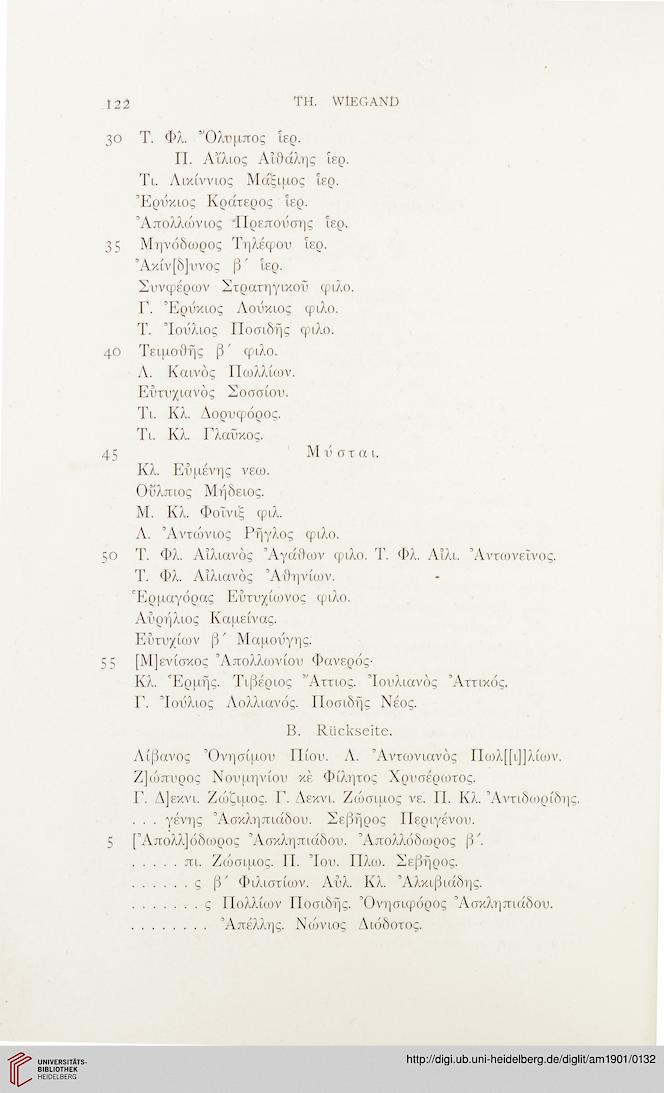 122 TH. WIEGAND
30 Τ. Φλ. Ὄλυμπος ἱερ.
Π. Αἴλιος Αἰθάλης ἱερ.
Τι. Λικίννιος Μάξιμος ἱερ.
Ἐρύκιος Κράτερος ἱερ.
Ἀπολλώνιος Πρεπούσης ἱερ.
35 Μηνόδωρος Τηλέφου ἱερ.
Ἀκίν[δ]υνος β´ ἱερ.
Συνφέρων Στρατηγικοῦ φιλο.
Γ. Ἐρύκιος Λούκιος φιλο.
Τ. Ἰούλιος Ποσιδῆς φιλο.
40 Τειμοθῆς β´ φιλο.
Λ. Καινὸς Πωλλίων.
Εὐτυχιανὸς Σοσσίου.
Τι. Κλ. Δορυφόρος.
Τι. Κλ. Γλαῦκος.
45 Μύσται.
Κλ. Εὐμένης νεω.
Οὔλπιος Μήδειος.
Μ. Κλ. Φοῖνιξ φιλ.
Λ. Ἀντώνιος Ρῆγλος φιλο.
50 Τ. Φλ. Αἰλιανὸς Ἀγάθων φιλο. Τ. Φλ. Αἰλι. Ἀντωνεῖνος.
Τ. Φλ. Αἰλιανὸς Ἀθηνίων.
Ἑρμαγόρας Εὐτυχίωνος φιλο.
Αὐρήλιος Καμείνας.
Εὐτυχίων β´ Μαμούγης.
55 [Μ]ενίσκος Ἀπολλωνίου Φανερός·
Κλ. Ἑρμῆς. Τιβέριος Ἄττιος. Ἰουλιανὸς Ἀττικός.
Γ. Ἰούλιος Λολλιανός. Ποσιδῆς Νέος.
B. Rückseite.
Λίβανος Ὀνησίμου Πίου. Λ. Ἀντωνιανὸς Πωλ[[ι]]λίων.
Ζ]ώπυρος Νουμηνίου κὲ Φίλητος Χρυσέρωτος.
Γ. Δ]εκνι. Ζώζιμος. Γ. Δεκνι. Ζώσιμος νε. Π. Κλ. Ἀντιδωρίδης.
. . . γένης Ἀσκληπιάδου. Σεβῆρος Περιγένου.
5 [Ἀπολλ]όδωρος Ἀσκληπιάδου. Ἀπολλόδωρος β´.
. . . . . πι. Ζώσιμος. Π. Ἰου. Πλω. Σεβῆρος.
. . . . . . ς β´ Φιλιστίων. Αὐλ. Κλ. Ἀλκιβιάδης.
. . . . . . . ς Πολλίων Ποσιδῆς. Ὀνησιφόρος Ἀσκληπιάδου.
. . . . . . . . Ἀπέλλης. Νώνιος Διόδοτος.
UNIVERSITÄTS-
BIBLIOTHEK
HEIDELBERG
http://digi.ub.uni-heidelberg.de/diglit/am1901/0132